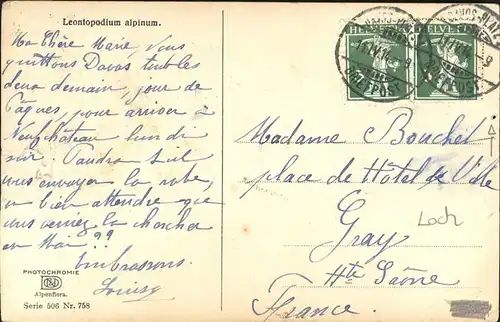 Leontopodium alpinum.
Ma Chère Marie, Nous
quittons Davos tous les
deux demain, jour de
Pâques, pour arriver à
Neufchâteau lundi
soir. Faudra t.il
vous envoyer la robe,
ou bien attendre que
vous veniez la chercher
en Mai ??
Embrassons.
Louise
PHOTOCHROMIE
Alpenflora.
Serie 506 Nr. 758
HELVETIA
HELVETIA
BRIEFPOST
BRIEFPOST
Madame Bouchet
place de Hôtel de Ville
Gray
Loch
Hte Saône
France.